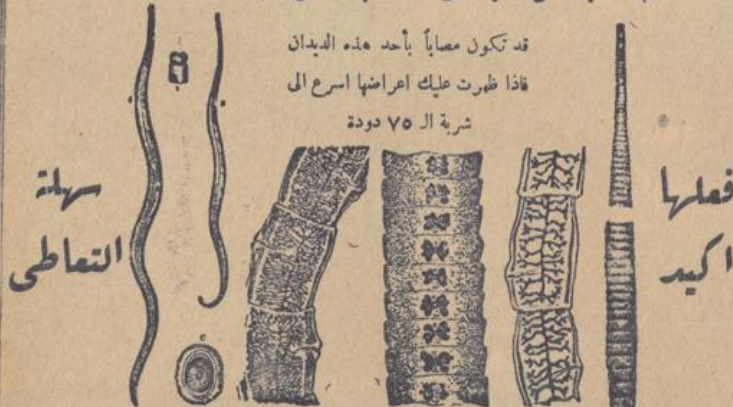 قد تكون مصاباً بأحد هذه الديدان
فاذا ظهرت عليك اعراضها اسرع الى
شربة ال ٧٥ دودة
فعلها
اكيد
سهلة
التعاطى